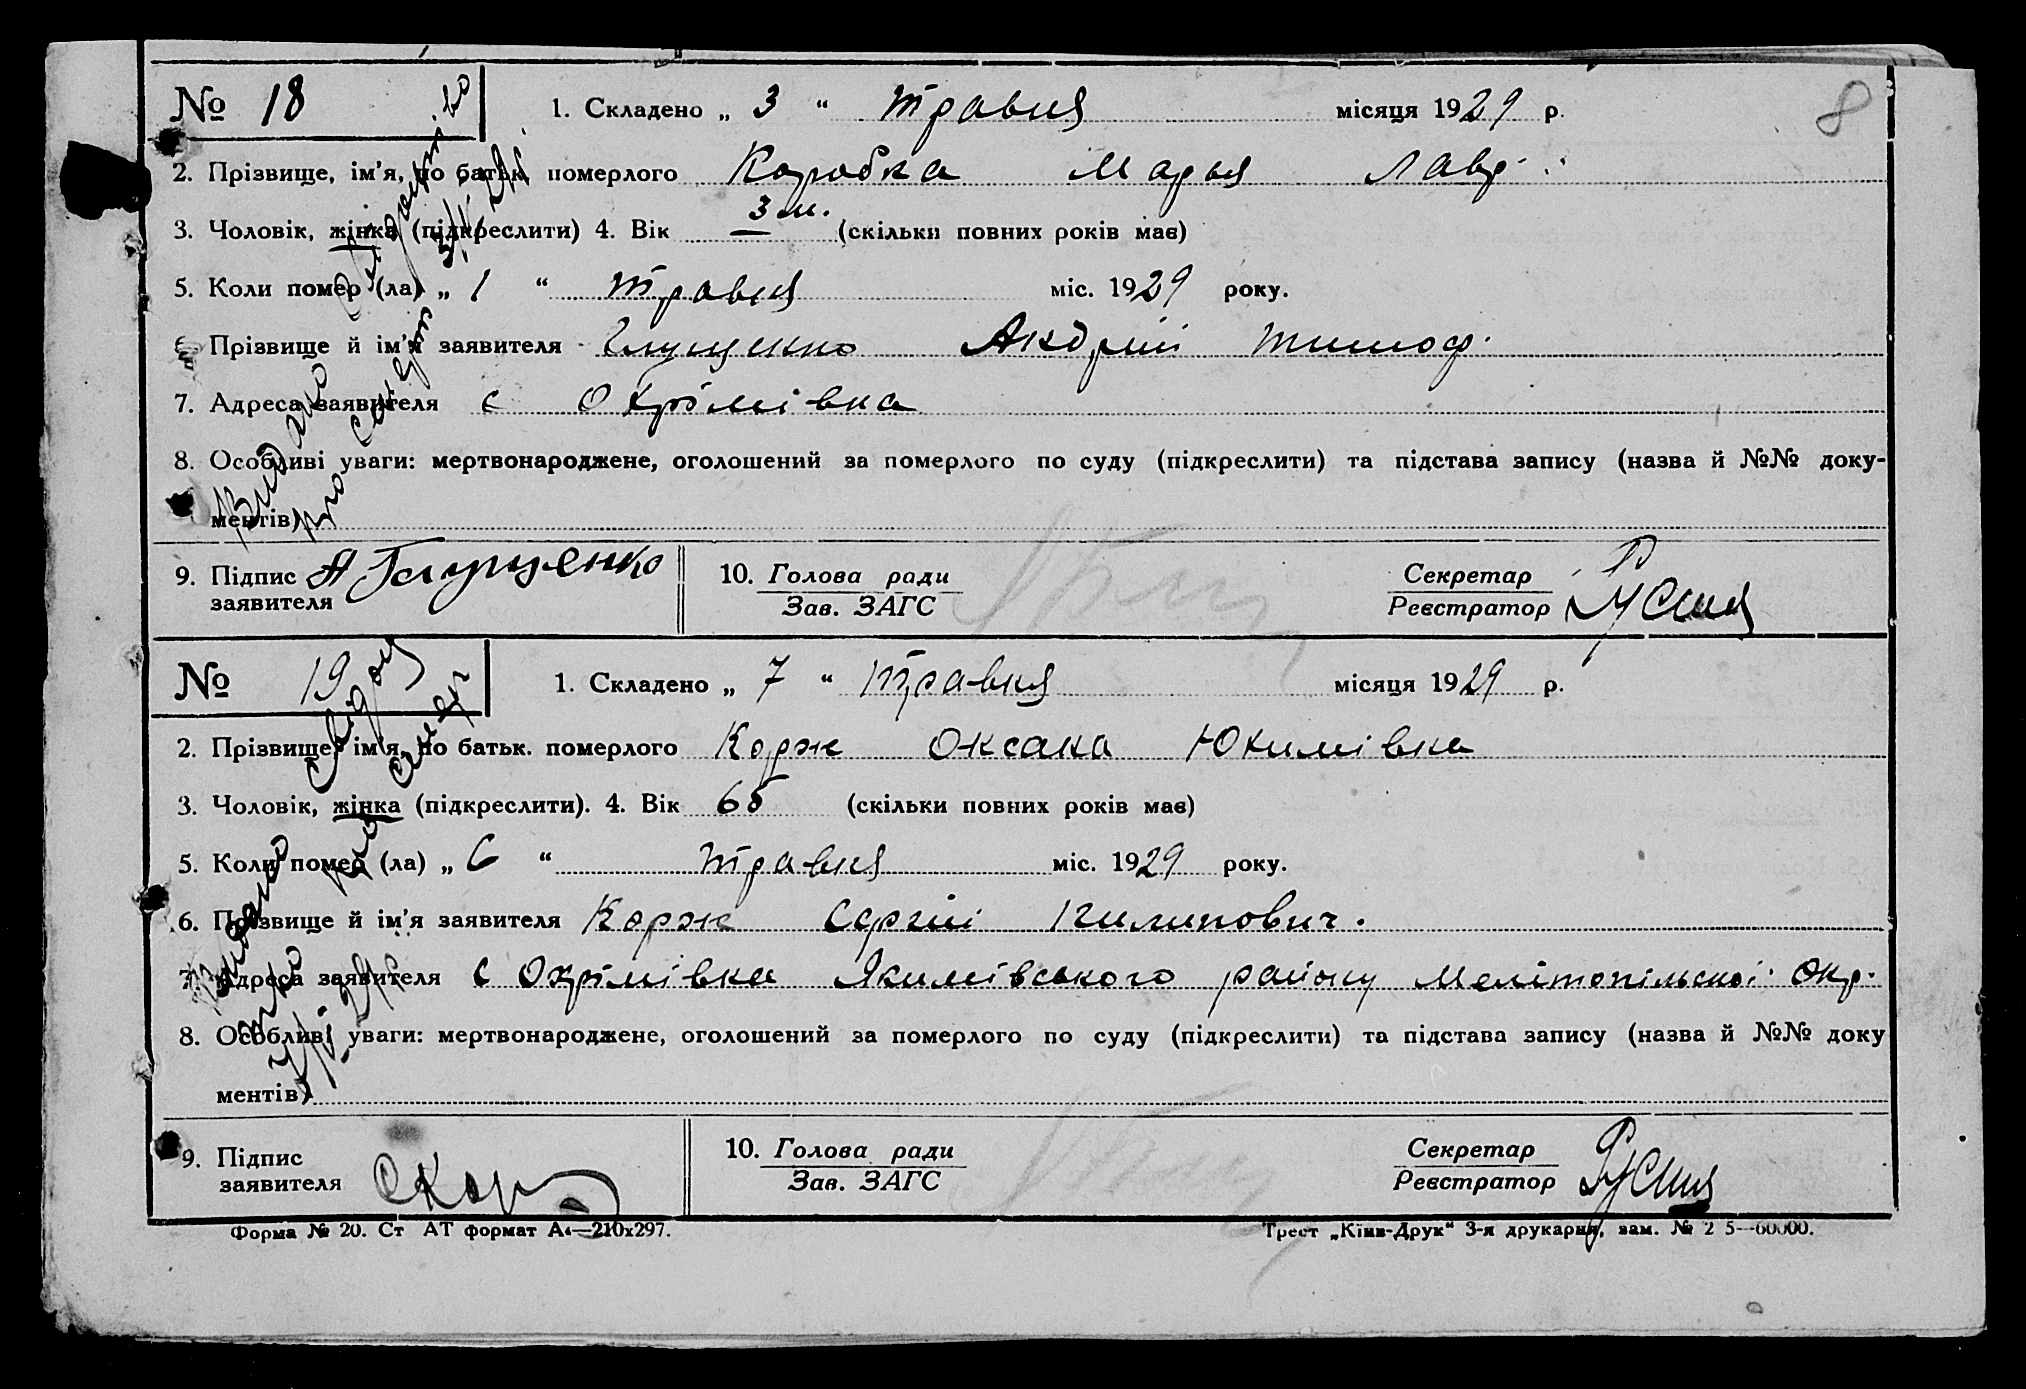 8
№ 18
1. Складено „ 3 “ травня місяця 1929 р.
2. Прізвище, ім'я, по батьк. померлого Коробка Марья Лавр.
3. Чоловік, жінка (підкреслити) 4. Вік 3 м. (скільки повних років має)
5. Коли помер (ла) „ 1 “ травня міс. 1929 року.
6. Прізвище й ім'я заявителя Глущенко Андрій Тимоф.
7. Адреса заявителя с Охрімівка
8. Особливі уваги: мертвонароджене, оголошений за померлого по суду (підкреслити) та підстава запису (назва й №№ доку-
ментів)
Видано
про смерть 3/V 29
9. Підпис заявителя А Глущенко
10. Голова ради
Зав. ЗАГС
Секретар
Реєстратор
№ 19
1. Складено „ 7 “ травня місяця 1929 р.
2. Прізвище, ім'я, по батьк. померлого Корж Оксана Юхимівна
3. Чоловік, жінка (підкреслити). 4. Вік 65 (скільки повних років має)
5. Коли помер (ла) „ 6 “ травня міс. 1929 року.
6. Прізвище й ім'я заявителя Корж Сергій
7. Адреса заявителя с Охрімівка Якимівського району Мелітопільскоі Окр.
8. Особливі уваги: мертвонароджене, оголошений за померлого по суду (підкреслити) та підстава запису (назва й №№ доку
ментів)
Видано
про смер
9. Підпис
заявителя С Корж
10. Голова ради
Зав. ЗАГС
Секретар
Реєстратор
Форма № 20. Ст АТ формат А₄—210х297.
Трест „Київ-Друк“ 3-я друкарня, зам. № 2 5—60000.